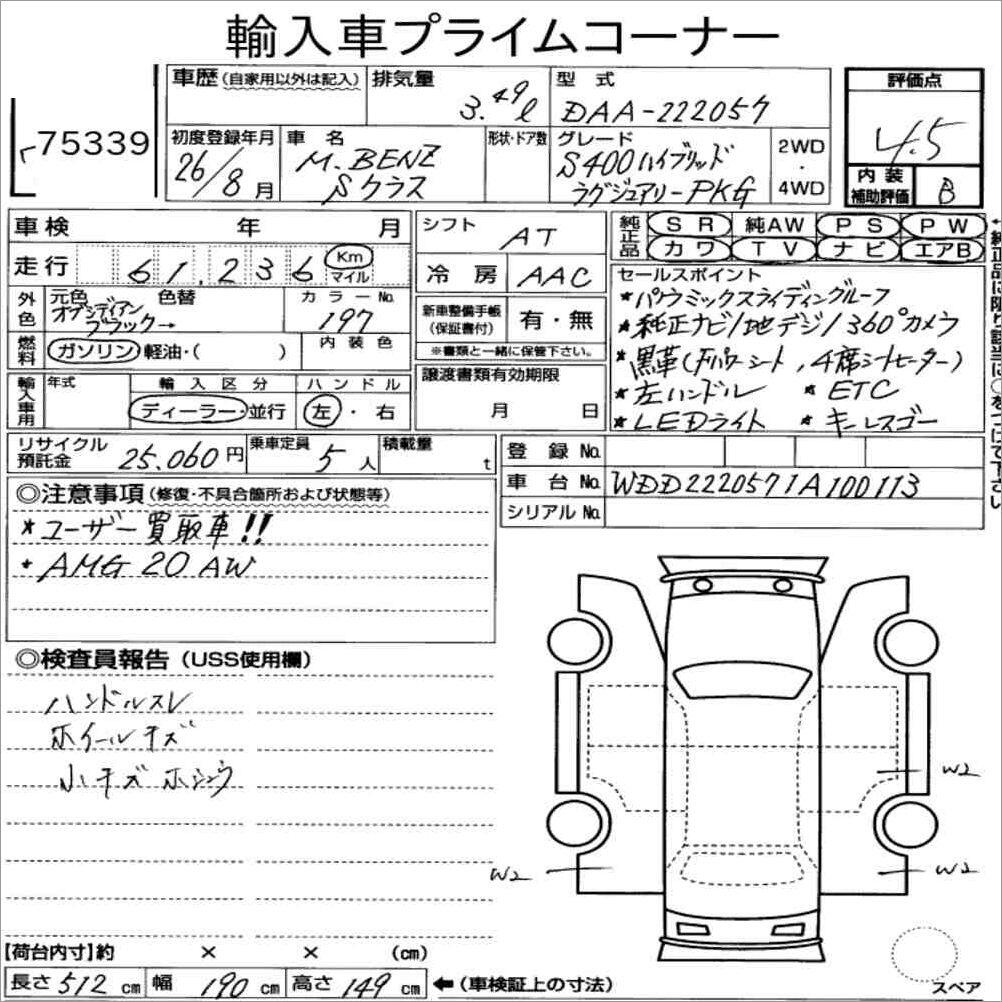 輸入車プライムコーナー
75339
車歴(自家用以外は記入) 排気量 3.49ℓ 型式 DAA-222057
評価点 4.5
内装補助評価 B
初度登録年月 26/8月
車名 M.BENZ Sクラス
形状・ドア数
グレード S400ハイブリッド ラグジュアリーPKG
2WD・4WD
車検 年 月
走行 61,236 Km マイル
シフト AT
冷房 AAC
純正品 SR 純AW PS PW
カワ TV ナビ エアB
外色 元色 色替 カラーNo.
オブシディアンブラック→ 197
燃料 ガソリン 軽油・( )
内装色
新車整備手帳(保証書付) 有・無
※書類と一緒に保管下さい。
セールスポイント
*パノラミックスライディングルーフ
*純正ナビ/地デジ/360°カメラ
*黒革(Fパワーシート,4席シートヒーター)
*左ハンドル *ETC
*LEDライト *キーレスゴー
輸入車用 年式 輸入区分 ハンドル
ディーラー・並行 左・右
譲渡書類有効期限
月 日
リサイクル預託金 25.060円 乗車定員 5人 積載量 t
登録No.
車台No. WDD2220571A100113
シリアルNo.
◎注意事項(修復・不具合箇所および状態等)
*ユーザー買取車!!
*AMG 20 AW
◎検査員報告(USS使用欄)
ハンドルスレ
ホイールキズ
小キズ ホシュウ
W2
W2
W2
【荷台内寸】約 × × (cm)
長さ512cm 幅190cm 高さ149cm ←(車検証上の寸法)
スペア